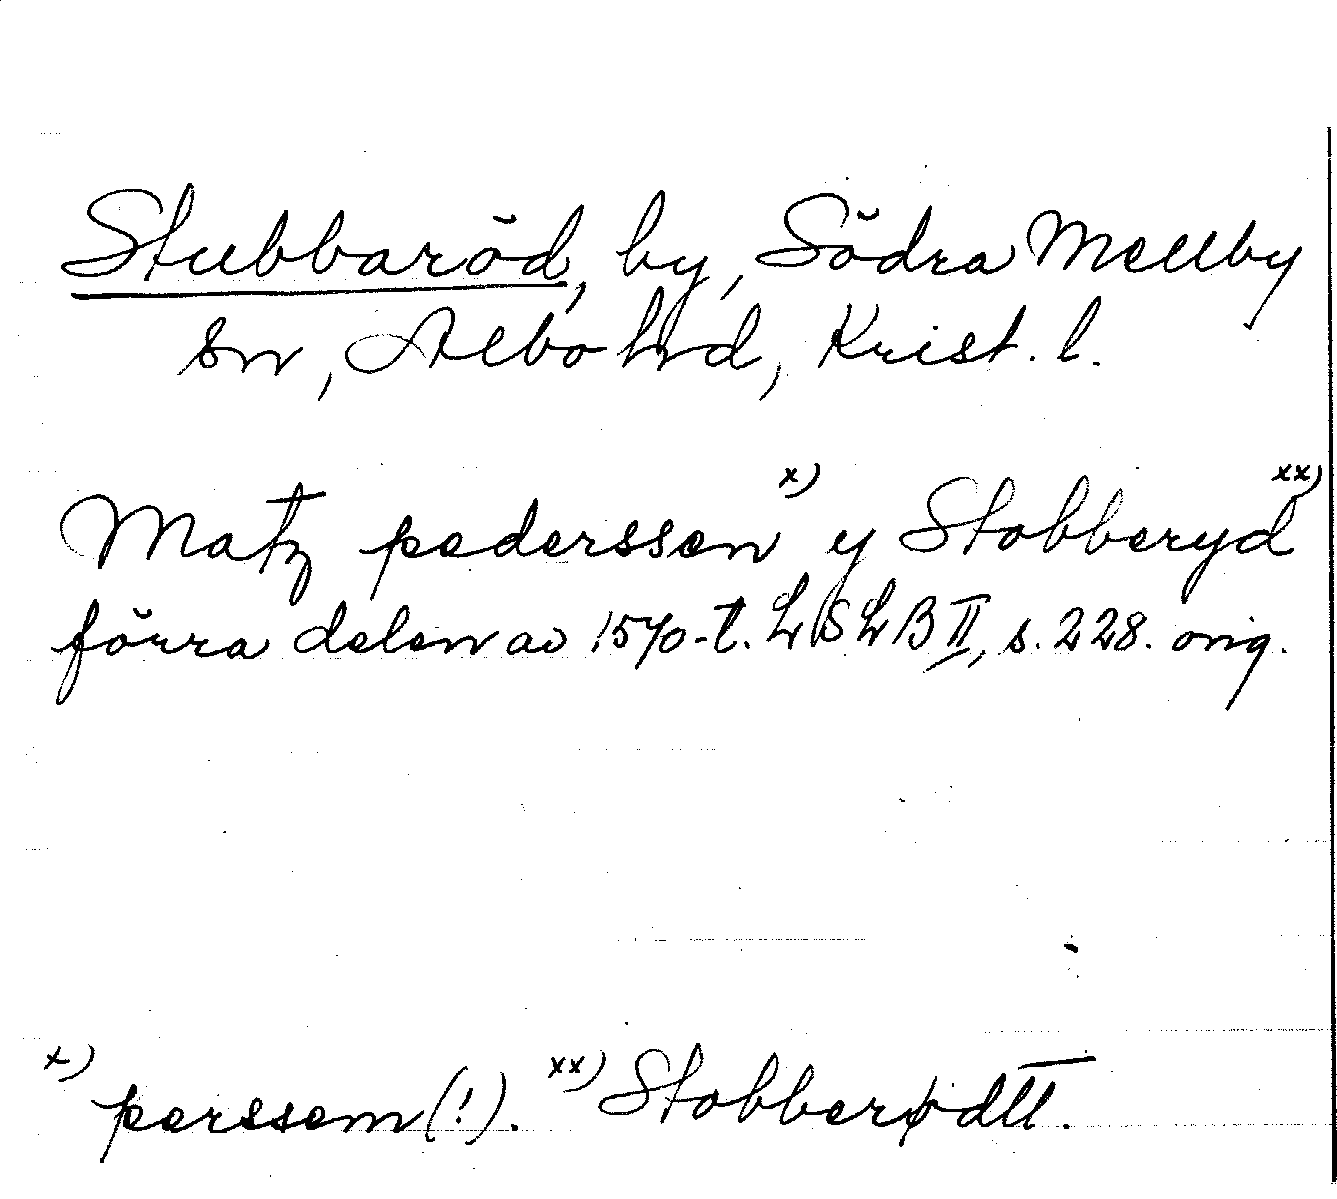 Stubbaröd, by, Södra Mellby
sn, Albo hrd, Krist. l.
Matz pederssen x) y Stobberyd xx)
förra delen av 1570-t. LSLB II, s. 228. orig.
x) perssem (!). xx) Stobberødtt.